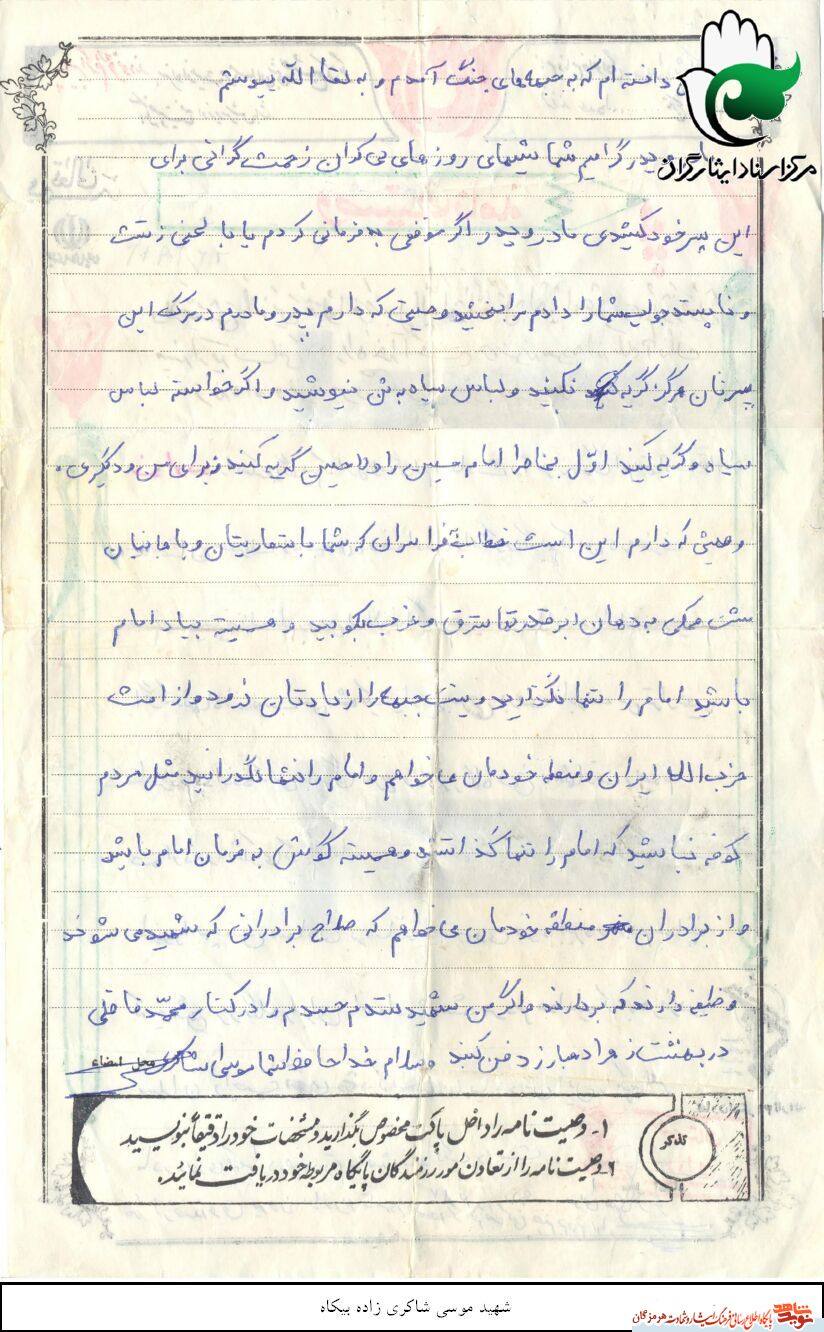 داشته ام که به جبهه های جنگ آمدم و به لقا الله پیوستم
مرکز اسناد ایثارگران
پدر گرامیم شما شبهای روزهای بی کران زحمت گرانی برای
این پسر خود کشیدی مادر و پدر اگر موقعی به فرمانی کردم یا با لحنی زشت
و ناپسند جواب شما را دادم مرا ببخشید وصیتی که دارم پدر و مادرم در مرگ این
پسرتان هرگز گریه نکنید و لباس سیاه به تن نپوشید و اگر خواسته لباس
سیاه و گریه کنید اول بخاطر امام حسین راه حسین گریه کنید نه برای من و دیگری.
وصیتی که دارم این است که شما با شعاریتان و با
مشت محکمی به دهان ابرقدرتها شرق و غرب بکوبید و همیشه بیاد امام
باشید امام را تنها نگذارید و پشت جبهه را از یادتان نرود و از امت
حزب الله ایران و منطقه خودمان می خواهم و امام را تنها نگذرانید مثل مردم
کوفه نباشید که امام را تنها گذاشتند و همیشه گوش به فرمان امام باشید
و از برادران منطقه خودمان می خواهم که صلاح برادرانی که شهید می شوند
وظیفه دارند که بردارند و اگر من شهید شدم جسدم را در کنار محمد
در بهشت زهرا دفن کنند وسلام خدا حافظ شما موسی شاکری
محل امضاء
تذکر
۱- وصیت نامه را داخل پاکت مخصوص بگذارید و مشخصات خود را دقیقاً بنویسید
۲- وصیت نامه را از تعاون امور رزمندگان پایگاه مربوطه خود دریافت نمائید.
شهید موسی شاکری زاده بیکاه
نوید شاهد
پایگاه اطلاع رسانی فرهنگ ایثار و شهادت هرمزگان